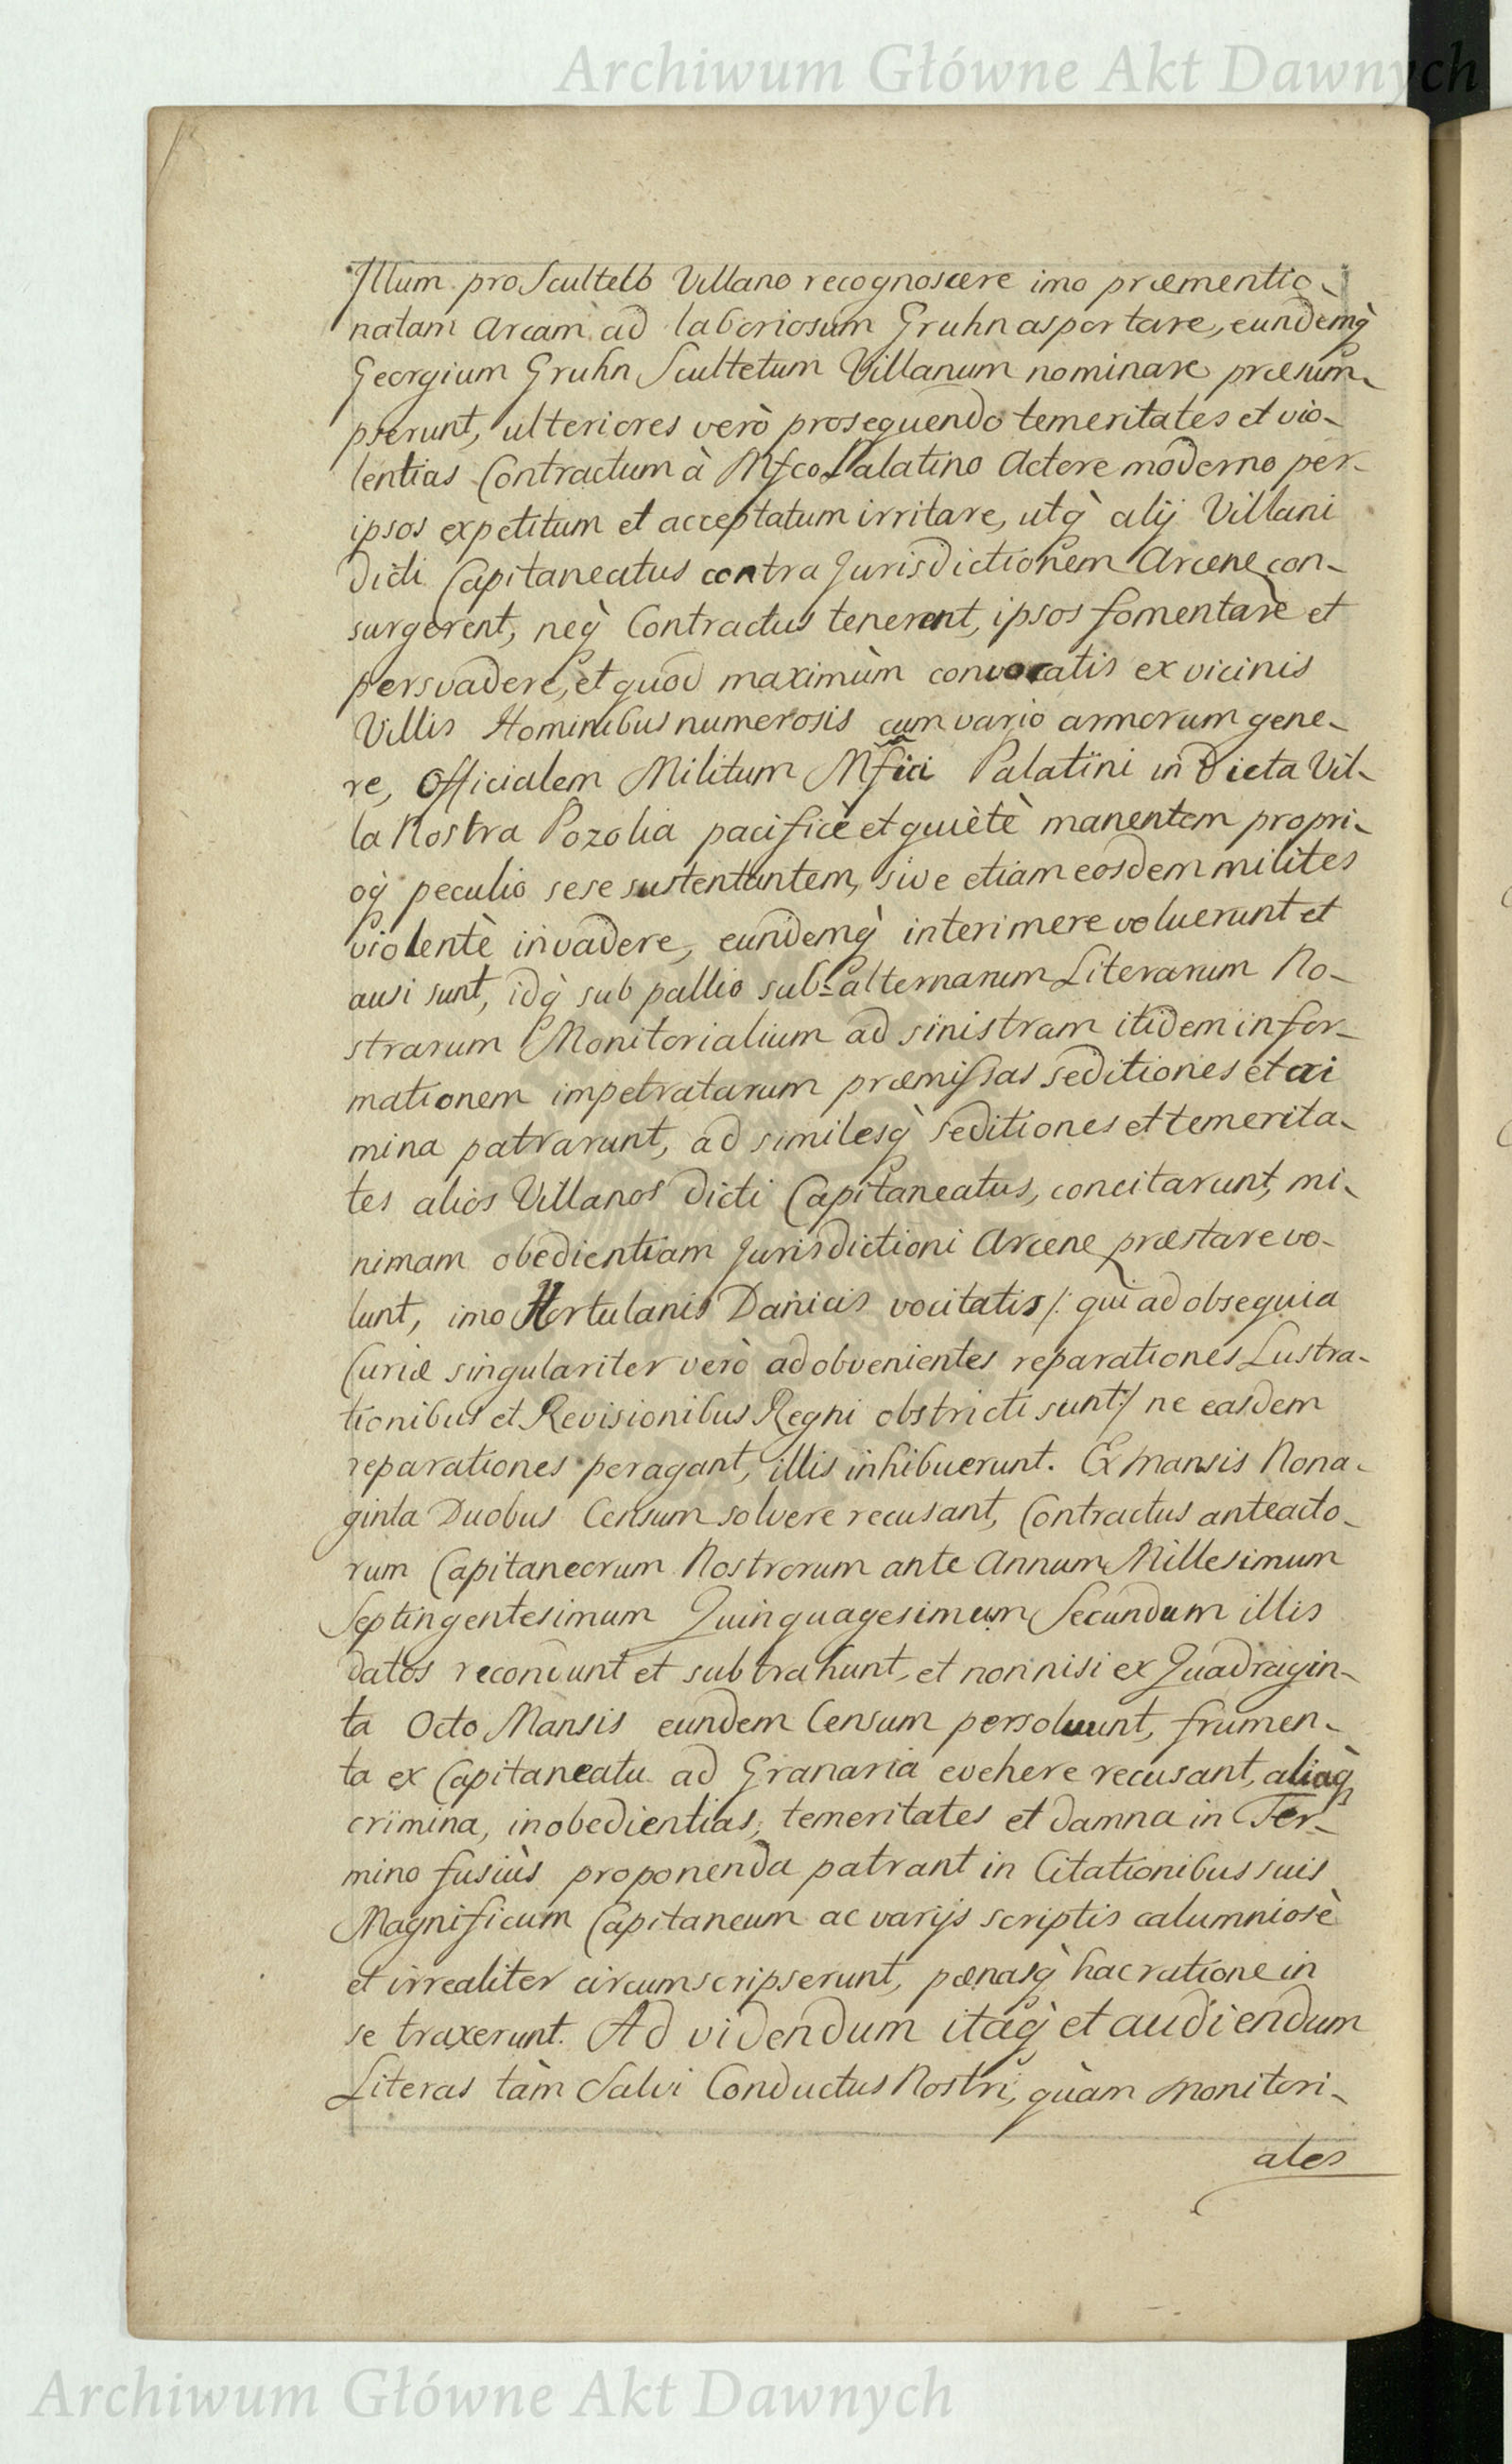 Archiwum Główne Akt Dawnych
Illum pro Sculteto Villano recognoscere imo præmentio-
natam Arcam ad laboriosum Gruhn asportare, eundemq̀
Georgium Gruhn Scultetum Villanum nominare præsum-
pserunt, ulteriores verò prosequendo temeritates et vio-
lentias Contractum à Mfco Palatino Actore moderno per
ipsos expetitum et acceptatum irritare, utq̀ alij Villani
dicti Capitaneatus contra Jurisdictionem Arcene con-
surgerent, neq̀ Contractus tenerent, ipsos fomentare et
persvadere, et quod maximùm convocatis ex vicinis
Villis Hominibus numerosis cum vario armorum gene-
re, Officialem Militum Mfici Palatini in Dicta Vil-
la Nostra Pozolia pacificè et quiètè manentem propri-
oq̀ peculio sese sustentantem, sive etiam eosdem milites
violentè invadere, eundemq̀ interimere voluerunt et
ausi sunt, idq̀ sub pallio sub-alternarum Literarum No-
strarum Monitorialium ad sinistram itidem infor-
mationem impetratarum præmissas seditiones et cri
mina patrarunt, ad similesq̀ seditiones et temerita-
tes alios Villanos dicti Capitaneatus, concitarunt, mi-
nimam obedientiam Jurisdictioni Arcene præstare vo-
lunt, imo Hortulanis Danicis vocitatis /: qui ad obsequia
Curiæ singulariter verò ad obvenientes reparationes Lustra-
tionibus et Revisionibus Regni obstricti sunt :/ ne easdem
reparationes peragant, illis inhibuerunt. Ex Mansis Nona-
ginta Duobus Censum solvere recusant, Contractus anteacto-
rum Capitaneorum Nostrorum ante Annum Millesimum
Septingentesimum Quinquagesimum Secundum illis
datos recondunt et subtrahunt, et non nisi ex Quadragin-
ta Octo Mansis eundem Censum persolvunt, frumen-
ta ex Capitaneatu ad Granaria evehere recusant, aliaq̀
crimina, inobedientias, temeritates et damna in Ter-
mino fusiùs proponenda patrant in Citationibus suis
Magnificum Capitaneum ac varijs scriptis calumniosè
et irrealiter circumscripserunt, pœnasq̀ hac ratione in
se traxerunt. Ad videndum itaq̀ et audiendum
Literas tàm Salvi Conductus Nostri, quàm Monitori-
ales
Archiwum Główne Akt Dawnych